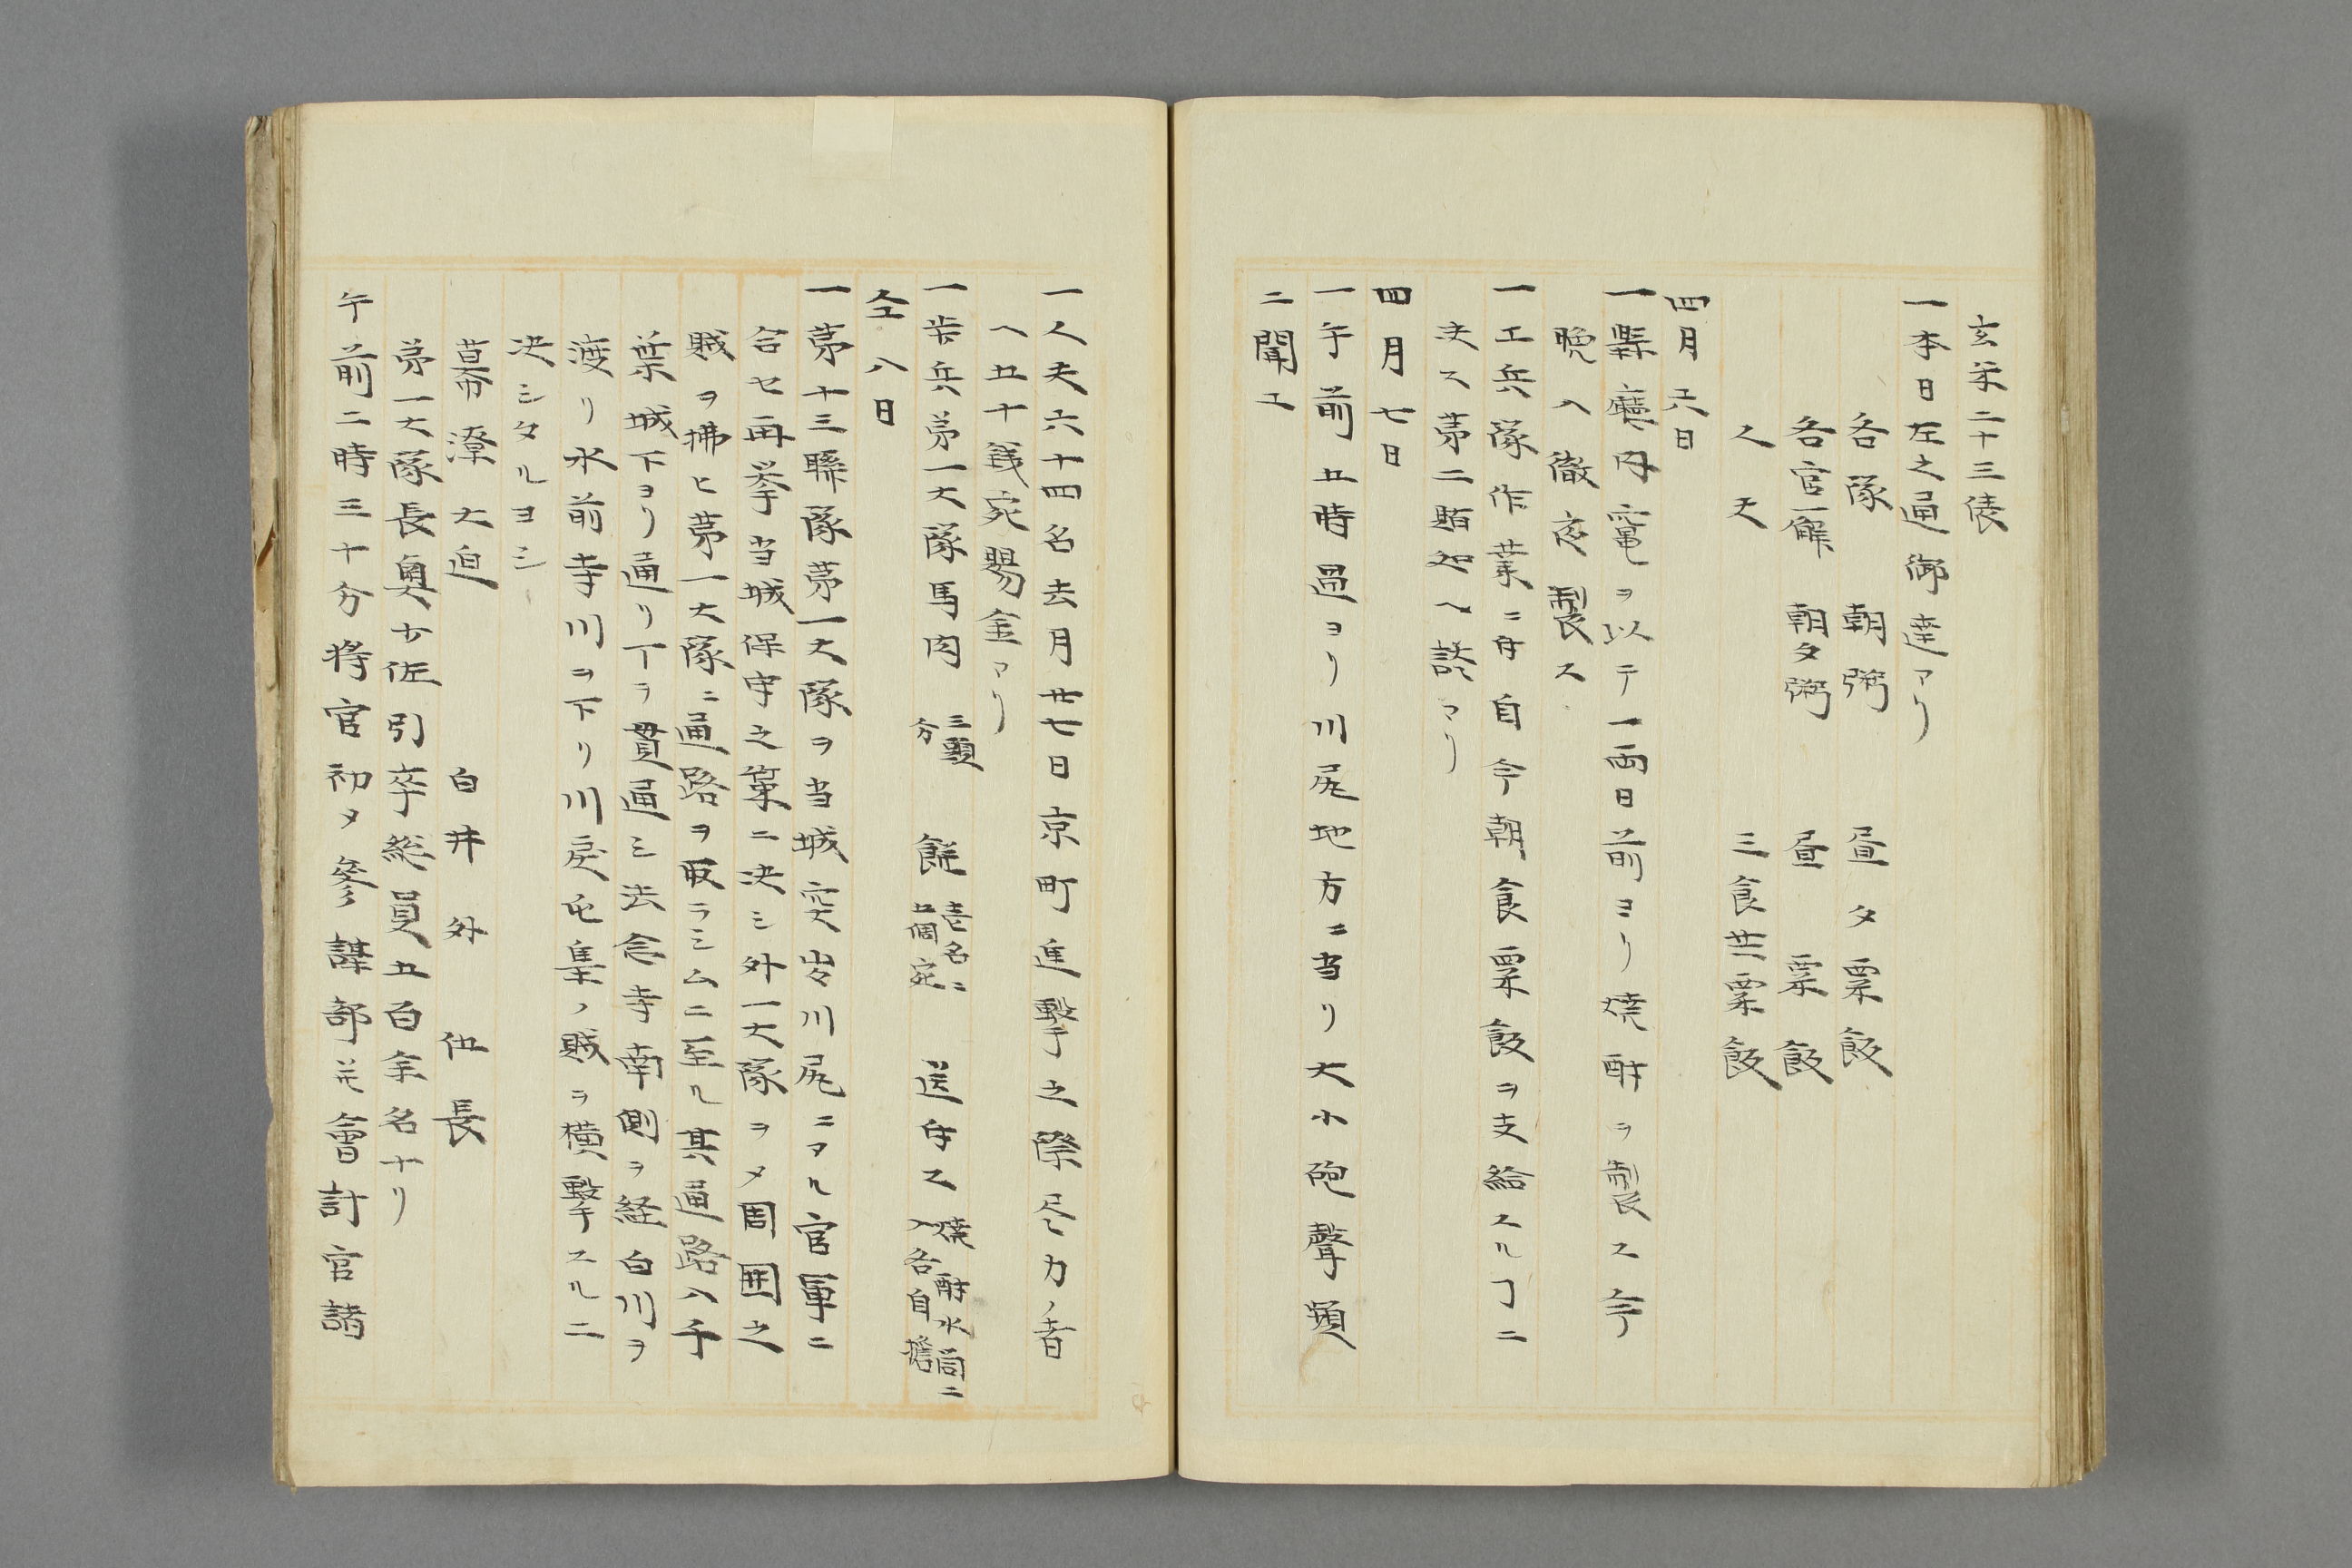 玄米二十三俵
一本日左之通御達アリ
各隊 朝粥 昼夕粟飯
各官廨 朝夕粥 昼 粟飯
人夫 三食共粟飯
四月六日
一縣廳内竃ヲ以テ一両日前ヨリ焼酎ヲ製ス今
晩ハ徹夜製ス
一工兵隊作業ニ付自今朝食粟飯ヲ支給スルヿニ
決ス第二賄処ヘ談アリ
四月七日
一午前五時過ヨリ川尻地方ニ当リ大小砲聲頻
ニ聞エ
一人夫六十四名去月廿七日京町進擊之際尽力ノ者
ヘ五十銭宛賜金アリ
一歩兵第一大隊馬肉 三頭分 餅 壱名ニ五個宛 送付ス 焼酎水筒ニ入各自携
仝八日
一第十三聯隊第一大隊ヲ当城突出川尻ニアル官軍ニ
合セ再挙当城保守之策ニ决シ外一大隊ヲメ周囲之
賊ヲ拂ヒ第一大隊ニ通路ヲ取ラシムニ至ル其通路ハ千
葉城下ヨリ通リ丁ヲ貫通シ法念寺南側ヲ経白川ヲ
渡リ水前寺川ヲ下リ川戻屯集ノ賊ヲ横擊スルニ
决シタルヨシ
幕僚大迫 白井外 伍長
第一大隊長奥少佐引卒総員五百余名ナリ
午前二時三十分将官初メ参謀部并會計官諸